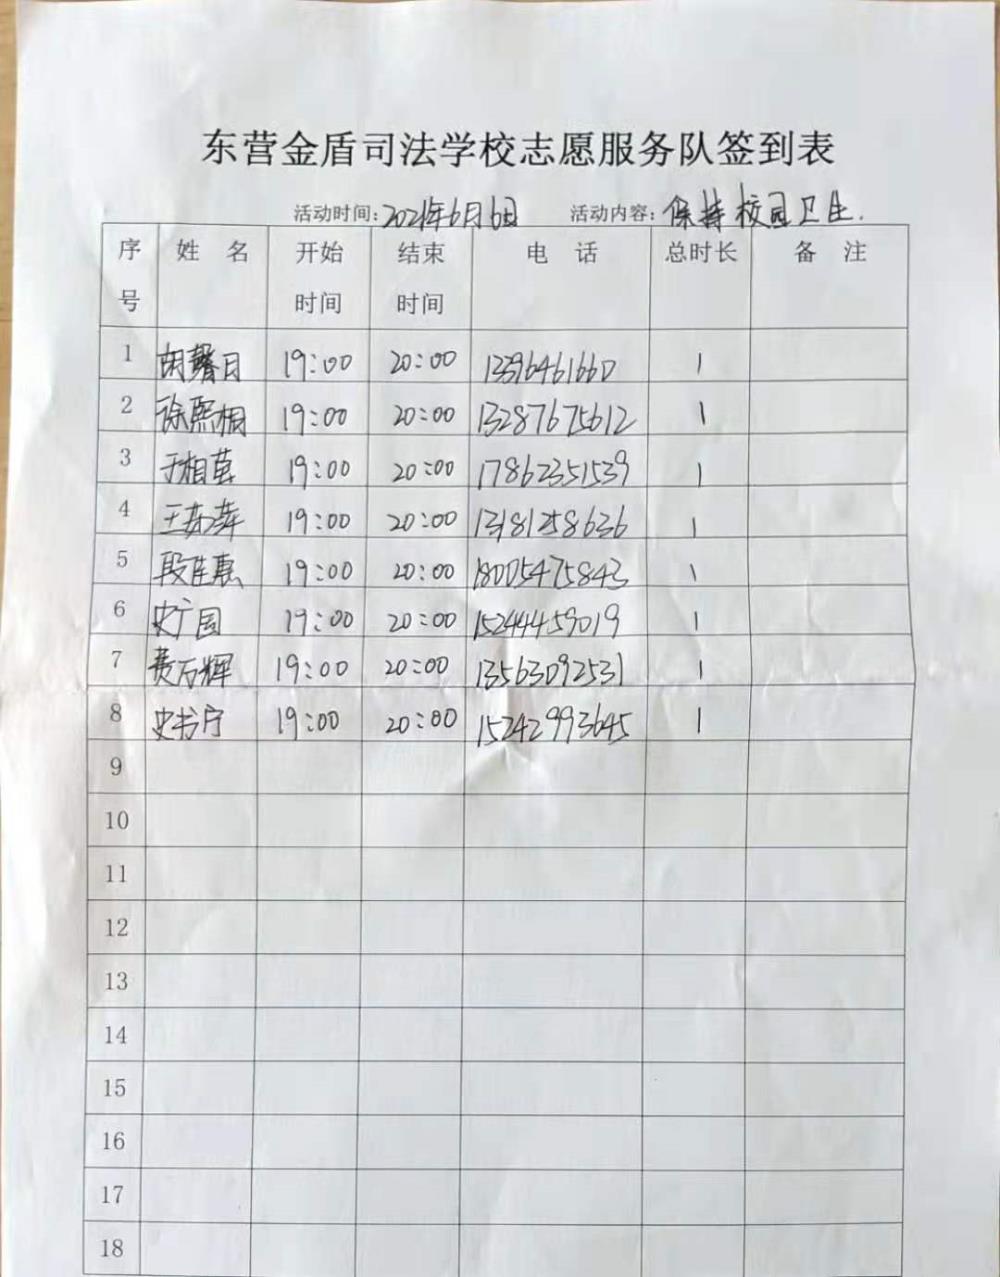 东营金盾司法学校志愿服务队签到表
活动时间:2021年6月6日 活动内容:保持校园卫生.
序号 姓名 开始时间 结束时间 电话 总时长 备注
1 胡馨月 19:00 20:00 13396461660 1
2 徐熙桐 19:00 20:00 13287675612 1
3 于相茧 19:00 20:00 17862351539 1
4 王苏萍 19:00 20:00 13181258636 1
5 段佳惠 19:00 20:00 18005475843 1
6 史广园 19:00 20:00 15244459019 1
7 黄万辉 19:00 20:00 13563092531 1
8 史书宁 19:00 20:00 15242993645 1
9
10
11
12
13
14
15
16
17
18